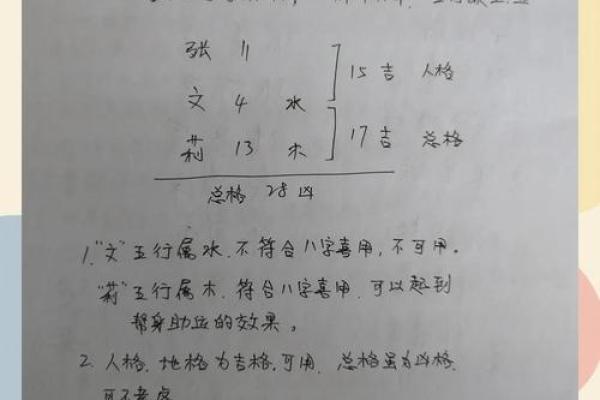 张 11
15 吉 人格
文 4 水
17 吉 总格
莉 13 木
总格 28 凶
1. "文"五行属水.不符合八字喜用,不可用。
"莉"五行属木.符合八字喜用.可以起到
帮身助运的效果。
2. 人格.地格为吉格.可用. 总格虽为凶格.
可不考虑